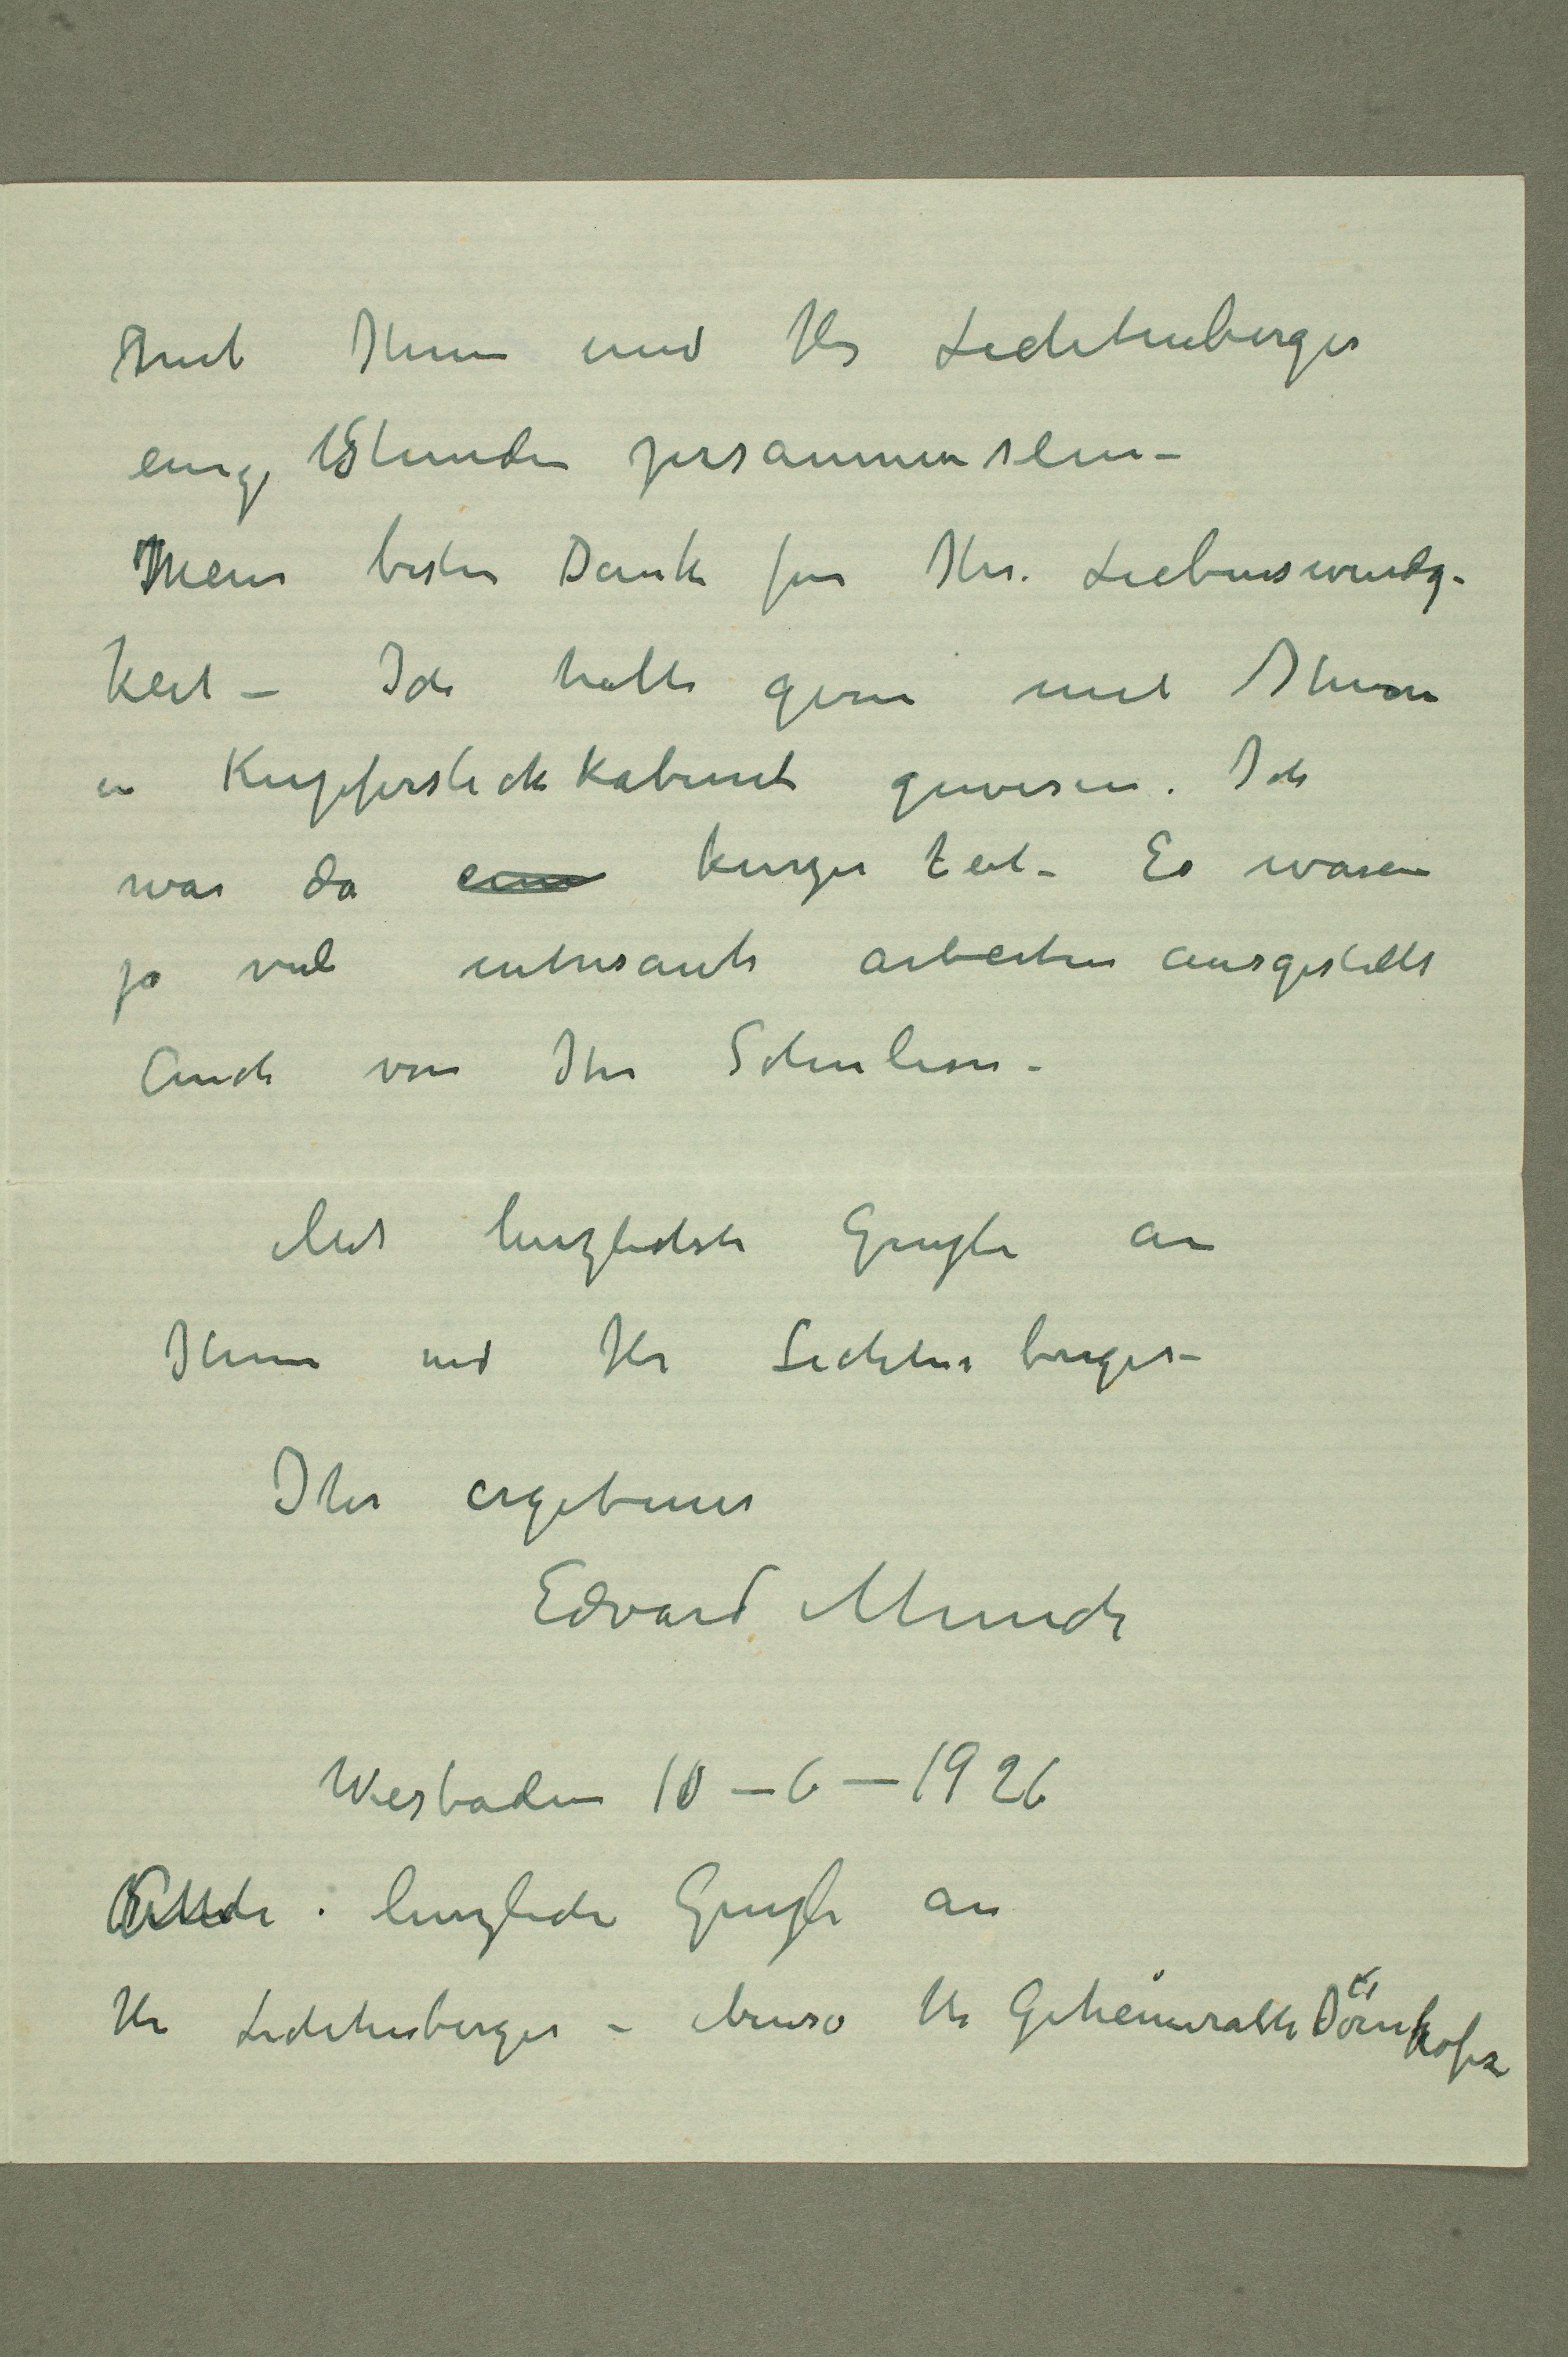 mit Ihnen und Hr Lichtenberger
einige Stunden zusammen sein –
Mein besten Dank für Ihr. Liebenswürdig-
keit – Ich hätte gern mit Ihnen
in Kupferstichkabinet gewesen. Ich
war da eine kurze Zeit – Es waren
ja viel intresante arbeiten ausgestellt
Auch von Ihr Schulern –
Mit herzlichste Gruße an
Ihnen und Hr Lichtenberger –
Ihr ergebener
Edvard Munch
Wiesbaden 10 – 6 – 1926
herzliche Gruße an
Hr Lichtenberger – ebenso Hr Geheimrath Dörnhöfer